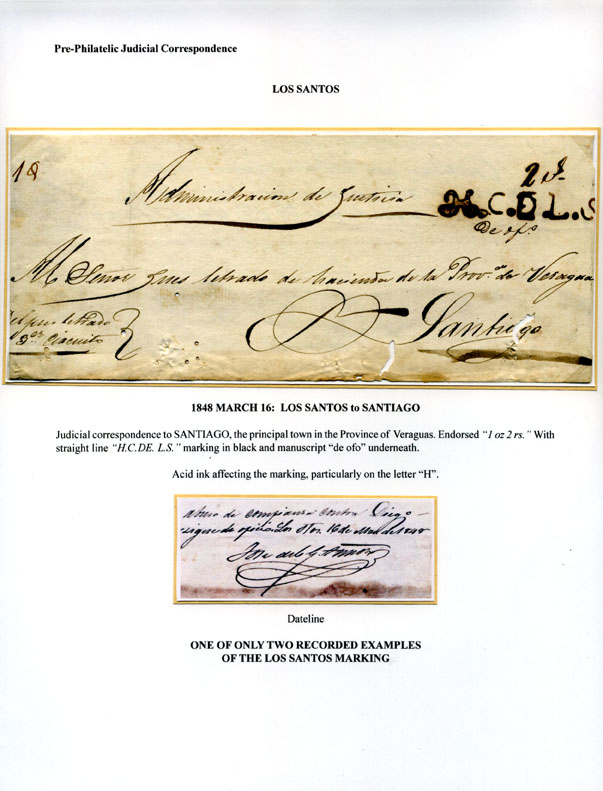 Pre-Philatelic Judicial Correspondence
LOS SANTOS
2 rs
Administracion de Justicia
H.C.DE L.S
De ofo
Al Señor Jues letrado de hacienda de la Prov.a de Veragua
Santiago
2o Circuito
1848 MARCH 16: LOS SANTOS to SANTIAGO
Judicial correspondence to SANTIAGO, the principal town in the Province of Veraguas. Endorsed "1 oz 2 rs." With
straight line "H.C.DE. L.S." marking in black and manuscript "de ofo" underneath.
Acid ink affecting the marking, particularly on the letter "H".
abuso de compianza contra Diego
sigue de oficio. Los Stos. 16 de Mzo de 1848
Jose
Dateline
ONE OF ONLY TWO RECORDED EXAMPLES
OF THE LOS SANTOS MARKING